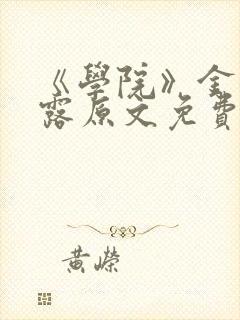 《學院》金
露原文免費
黃嶸